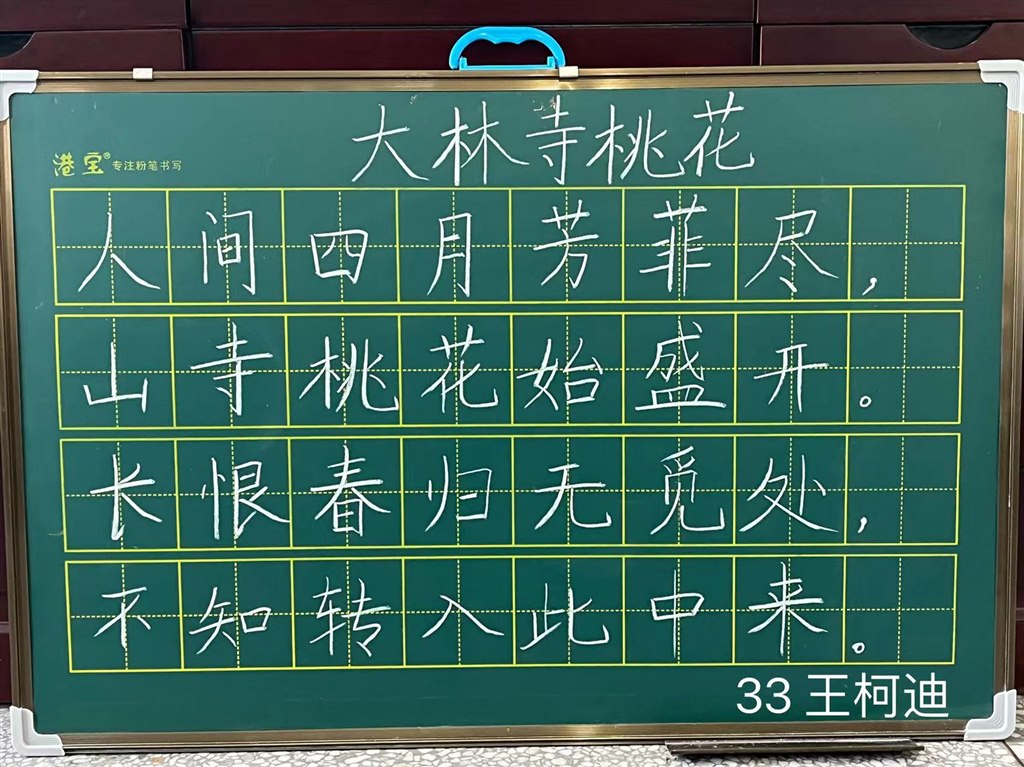 大林寺桃花
港宝® 专注粉笔书写
人间四月芳菲尽，
山寺桃花始盛开。
长恨春归无觅处，
不知转入此中来。
33 王柯迪